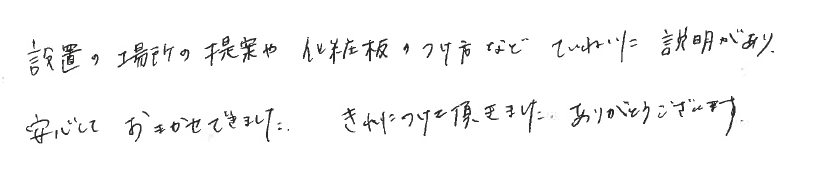 設置の場所の提案や 化粧板のつけ方など ていねいに 説明があり、
安心して おまかせできました。 きれいにつけて頂きました。ありがとうございます。